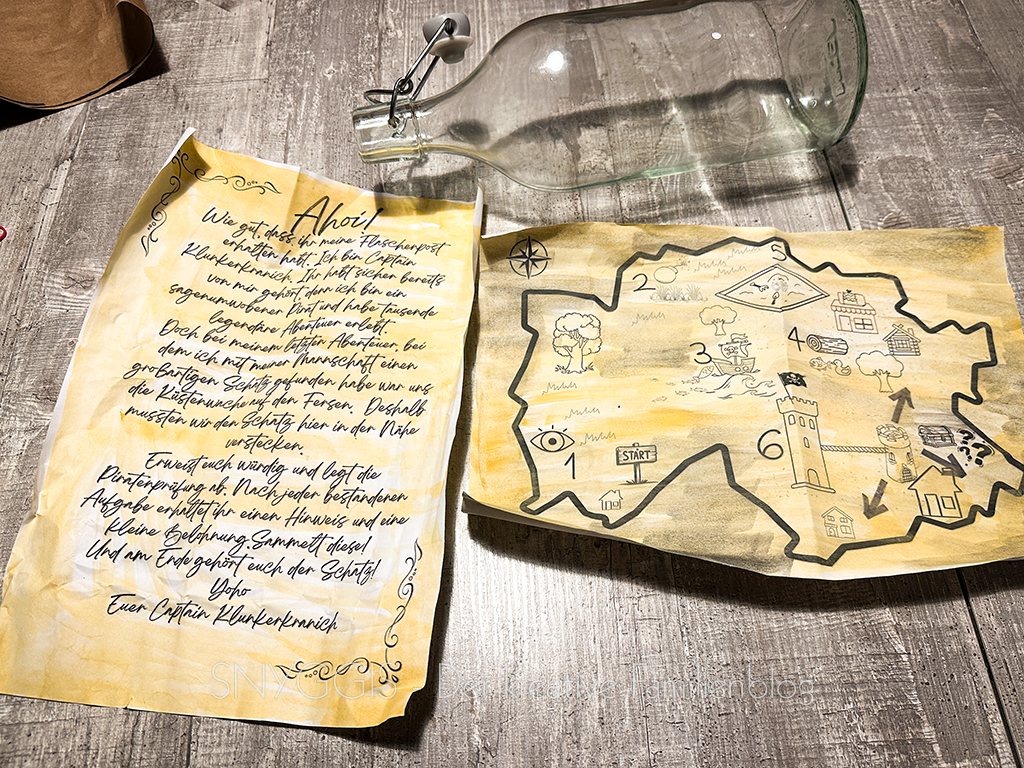 Ahoi!
Wie gut, dass ihr meine Flaschenpost
erhalten habt. Ich bin Captain
Klunkerkranich. Ihr habt sicher bereits
von mir gehört denn ich bin ein
sagenumwobener Pirat und habe tausende
legendäre Abenteuer erlebt.
Doch bei meinem letzten Abenteuer, bei
dem ich mit meiner Mannschaft einen
großartigen Schatz gefunden habe war uns
die Küstenwache auf den Fersen. Deshalb
mussten wir den Schatz hier in der Nähe
verstecken.
Erweist euch würdig und legt die
Piratenprüfung ab. Nach jeder bestandenen
Aufgabe erhaltet ihr einen Hinweis und eine
kleine Belohnung. Sammelt diese!
Und am Ende gehört euch der Schatz!
Yoho
Euer Captain Klunkerkranich
5
2
3
4
1
START
6
???
SNYGGIS
Familienblog